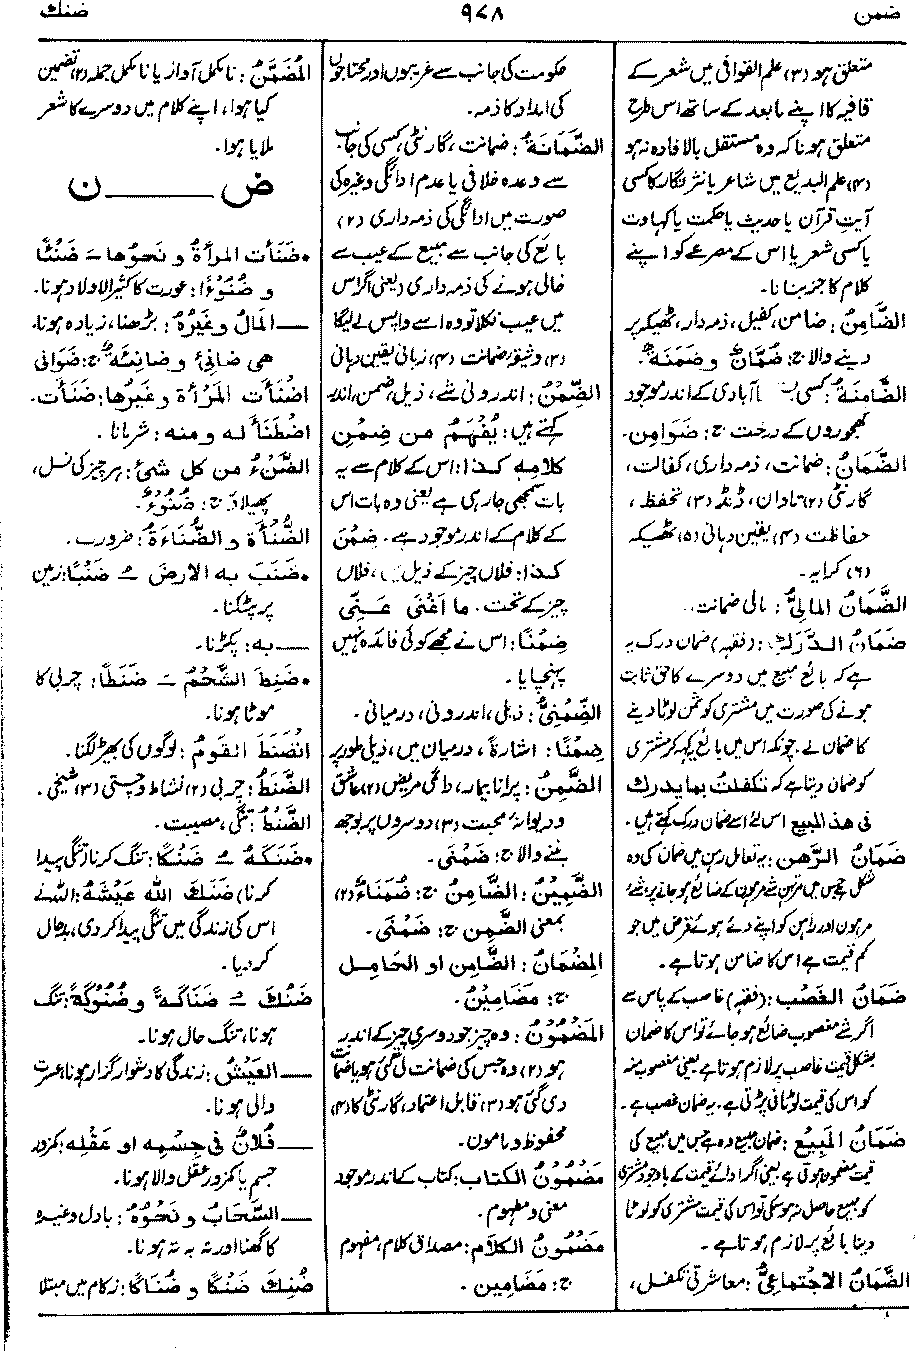 ضمن
٩٧٨
ضنك
متعلق ہو (٣) علم القوافی میں شعر کے
قافیہ کا اپنے مابعد کے ساتھ اس طرح
متعلق ہونا کہ وہ مستقل بالافادہ نہ ہو
(۴) علم البدیع میں شاعر یا نثر نگار کا کسی
آیت قرآن یا حدیث یا حکمت یا کہاوت
یا کسی شعر یا اس کے مصرعے کو اپنے
کلام کا جز بنانا۔
الضَّامِنُ: ضامن، کفیل، ذمہ دار، ٹھیکہ پر
دینے والا ج: ضُمَّانٌ وضَمَنَة۔
الضَّامِنَةُ: کسی آبادی کے اندر موجود
کھجوروں کے درخت ج: ضَوَامِن۔
الضَّمَانُ: ضمانت، ذمہ داری، کفالت،
گارنٹی (٢) تاوان، ڈنڈ (٣) تحفظ،
حفاظت (۴) یقین دہانی (۵) ٹھیکہ
(٦) کرایہ۔
الضَّمَانُ المَالِيُّ: مالی ضمانت۔
ضَمَانُ الدَّرَكِ: (فقہ) ضمان درک یہ
ہے کہ بائع مبیع میں دوسرے کا حق ثابت
ہونے کی صورت میں مشتری کو ثمن لوٹا دینے
کا ضمان لے۔ چونکہ اس میں بائع یہ کہہ کر مشتری
کو ضمان دیتا ہے کہ تكفلتُ بما يدرك
فی هذ المبيع اس لئے اسے ضمان درک کہتے ہیں۔
ضَمَانُ الرَّهن: یہ تعامل رہن میں ضمان کی وہ
شکل ہے جس میں مرتہن شے مرہون کے ضائع ہو جانے پر شئے
مرہون اور راہن کو اپنے دئے ہوئے قرض میں جو
کم قیمت ہے اس کا ضامن ہوتا ہے۔
ضَمَانُ الغَصْب: (فقہ) غاصب کے پاس سے
اگر شئے مغصوب ضائع ہو جائے تو اس کا ضمان
بشکل قیمت غاصب پر لازم ہوتا ہے یعنی مغصوب منہ
کو اس کی قیمت لوٹانی پڑتی ہے۔ یہ ضمان غصب ہے۔
ضَمَانُ المَبِيْع: ضمان مبیع وہ ہے جس میں مبیع کی
قیمت مضمون ہوتی ہے یعنی اگر ادائے قیمت کے باوجود مشتری
کو مبیع حاصل نہ ہو سکی تو اس کی قیمت مشتری کو لوٹا
دینا بائع پر لازم ہوتا ہے۔
الضَّمَانُ الاجْتِمَاعِيُّ: معاشرتی تکفل،
حکومت کی جانب سے غریبوں اور محتاجوں
کی امداد کا ذمہ۔
الضَّمَانَةُ: ضمانت، گارنٹی، کسی کی جانب
سے وعدہ خلافی یا عدم ادائگی وغیرہ کی
صورت میں ادائگی کی ذمہ داری (٢)
بائع کی جانب سے مبیع کے عیب سے
خالی ہونے کی ذمہ داری (یعنی اگر اس
میں عیب نکلا تو وہ اسے واپس لے لیگا
(٣) وثیقۂ ضمانت (۴) زبانی یقین دہانی
الضِّمْنُ: اندرونی شے، ذیل، ضمن، اندر
کہتے ہیں: يُفْهَمُ من ضِمْنِ
كلامِه كذا: اس کے کلام سے یہ
بات سمجھی جا رہی ہے یعنی وہ بات اس
کے کلام کے اندر موجود ہے۔ ضِمْنَ
كذا: فلاں چیز کے ذیل میں، فلاں
چیز کے تحت۔ ما أغْنَى عَنِّي
ضِمْنًا: اس نے مجھے کوئی فائدہ نہیں
پہنچایا۔
الضِّمْنِيُّ: ذیلی، اندرونی، درمیانی۔
ضِمْنًا: اشارةً، درمیان میں، ذیلی طور پر
الضَّمِنُ: پرانا بیمار، دائمی مریض (٢) عاشق
و دیوانۂ محبت (٣) دوسروں پر بوجھ
بننے والا ج: ضَمْنَى۔
الضَّمِيْنُ: الضَّامِنُ ج: ضُمَنَاءُ (٢)
بمعنی الضَّمِن ج: ضَمْنَى۔
المِضْمَانُ: الضَّامِن او الحَامِل
ج: مَضَامِيْنُ۔
المَضْمُوْنُ: وہ چیز جو دوسری چیز کے اندر
ہو (٢) وہ جس کی ضمانت لی گئی ہو یا ضمانت
دی گئی ہو (٣) قابل اعتماد، گارنٹی کا (۴)
محفوظ و مامون۔
مَضْمُونُ الكتاب: کتاب کے اندر موجود
معنی و مفہوم۔
مَضْمُونُ الكَلَام: مصداق کلام، مفہوم
ج: مَضَامِين۔
المُضَمَّنُ: نامکمل آواز یا نامکمل جملہ (٢) تضمین
کیا ہوا، اپنے کلام میں دوسرے کا شعر
ملایا ہوا۔
ض ـــــــ ن
• ضَنَأَت المرأةُ و نحوُها ـَ ضَنْئًا
و ضُنُوْءًا: عورت کا کثیر الاولاد ہونا۔
ــ المَالُ وغَيْرُهُ: بڑھنا، زیادہ ہونا،
هی ضَانِئٌ و ضَانِئَةٌ ج: ضَوَانِئُ
اَضْنَأَت المَرْأةُ وغَيْرُها: ضَنَأَت۔
اضْطَنَأَ له و منه: شرمانا۔
الضَّنْءُ من كل شئ: ہر چیز کی نسل،
پھیلاؤ ج: ضُنُوْءٌ۔
الضُّنْأَةُ و الضُّنَاءَةُ: ضرورت۔
• ضَنَبَ به الارضَ ـُ ضَنْبًا: زمین
پر پٹکنا۔
ــ به: پکڑنا۔
• ضَنِطَ الشَّحْمُ ـَ ضَنَطًا: چربی کا
موٹا ہونا۔
انْضَنَطَ القومُ: لوگوں کی بھیڑ لگنا۔
الضَّنَطُ: چربی (٢) نشاط و چستی (٣) شیخی۔
الضَّنْطُ: تنگی، مصیبت۔
• ضَنَكَهُ ـُ ضَنْكًا: تنگ کرنا، تنگی پیدا
کرنا، ضَنَكَ الله عَيْشَهُ: اللہ نے
اس کی زندگی میں تنگی پیدا کر دی، بد حال
کر دیا۔
ضَنُكَ ـُ ضَنَاكَةً و ضُنُوْكَةً: تنگ
ہونا، تنگ حال ہونا۔
ــ العَيْشُ: زندگی کا دشوار گزار ہونا، عسرت
والی ہونا۔
ــ فُلَانٌ فی جِسْمِه او عَقْلِه: کمزور
جسم یا کمزور عقل والا ہونا۔
ــ السَّحَابُ و نَحْوُهُ: بادل وغیرہ
کا گھنا اور تہ بہ تہ ہونا۔
ضُنِكَ ضَنْكًا و ضُنَاكًا: زکام میں مبتلا